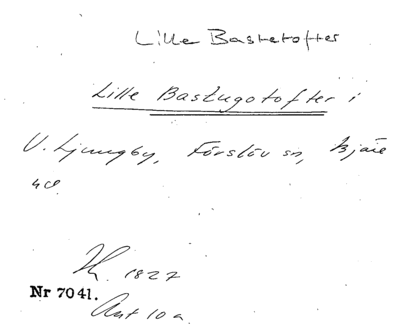 Lille Bastetofter
Lille Bastugotofter i
V. Ljungby, Förslöv sn, Bjäre
hd
1827
Nr 7041.
Akt 10 a